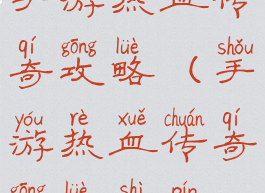 手游热血传
qí gōng lüè shǒu
奇攻略（手
yóu rè xuě chuán qí
游热血传奇
gōng lüè shì pín